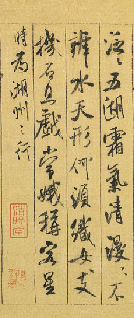 泛〻五湖霜氣清漫〻不
辨水天形何須織女支
機石且戲常娥稱客星
時為湖州之行